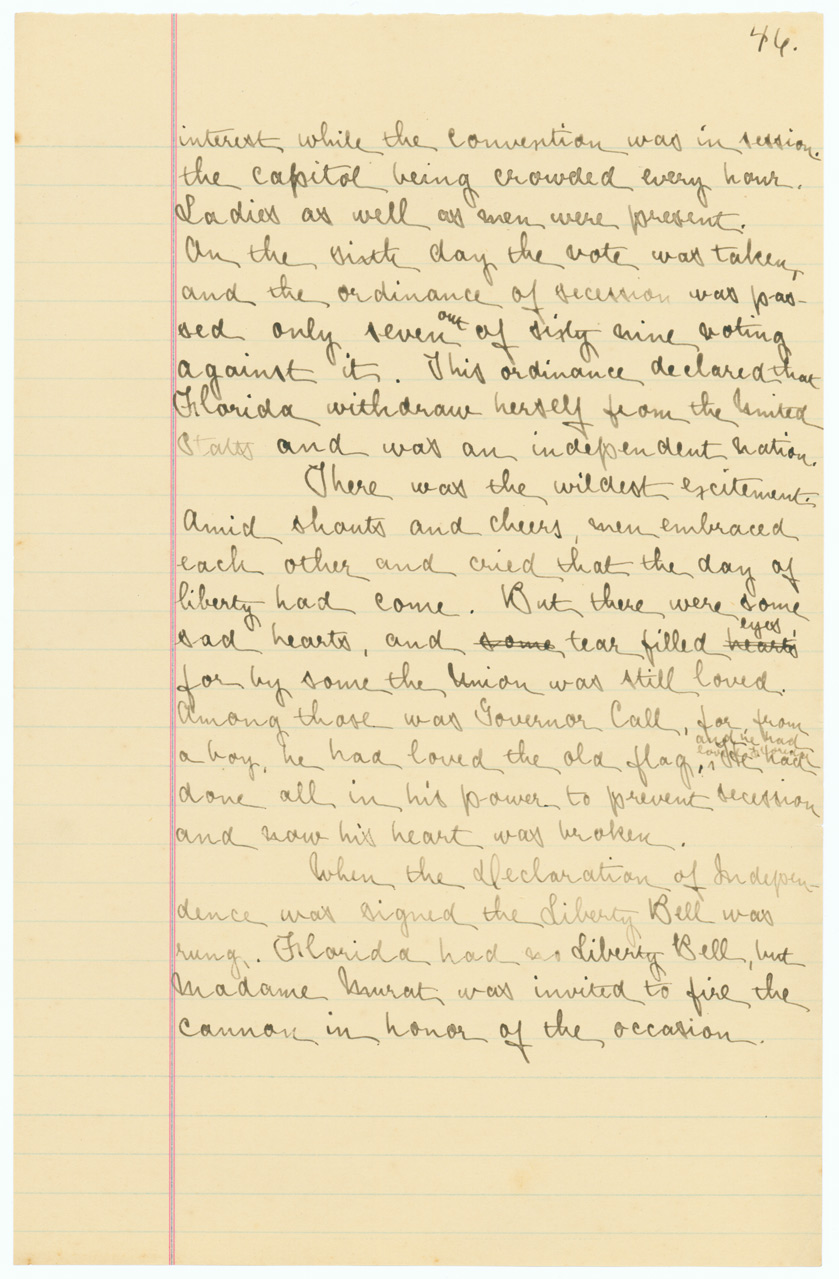 46.
interest while the convention was in session.
the capitol being crowded every hour.
Ladies as well as men were present.
On the sixth day the vote was taken,
and the ordinance of secession was pas-
out
sed only seven of sixty nine voting
against it. This ordinance declared that
Florida withdraw herself from the United
States and was an independent nation.
There was the wildest excitement.
Amid shouts and cheers, men embraced
each other and cried that the day of
liberty had come. But there were some
eyes,
sad hearts, and some tear filled hearts
for by some the Union was still loved.
Among those was Governor Call, for from
and he had
loved
a boy, he had loved the old flag, He had
done all in his power to prevent secession
and now his heart was broken.
When the Declaration of Indepen-
dence was signed the Liberty Bell was
rung. Florida had no Liberty Bell, but
Madame Murat was invited to fire the
cannon in honor of the occasion.